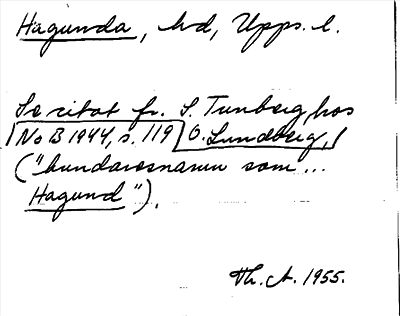 Hagunda, hd, Upps. l.
Se citat fr. S. Tunberg hos
No B 1944, s. 119 O. Lundberg,
("hundaresnamn som ...
Hagund").
Th. A. 1955.